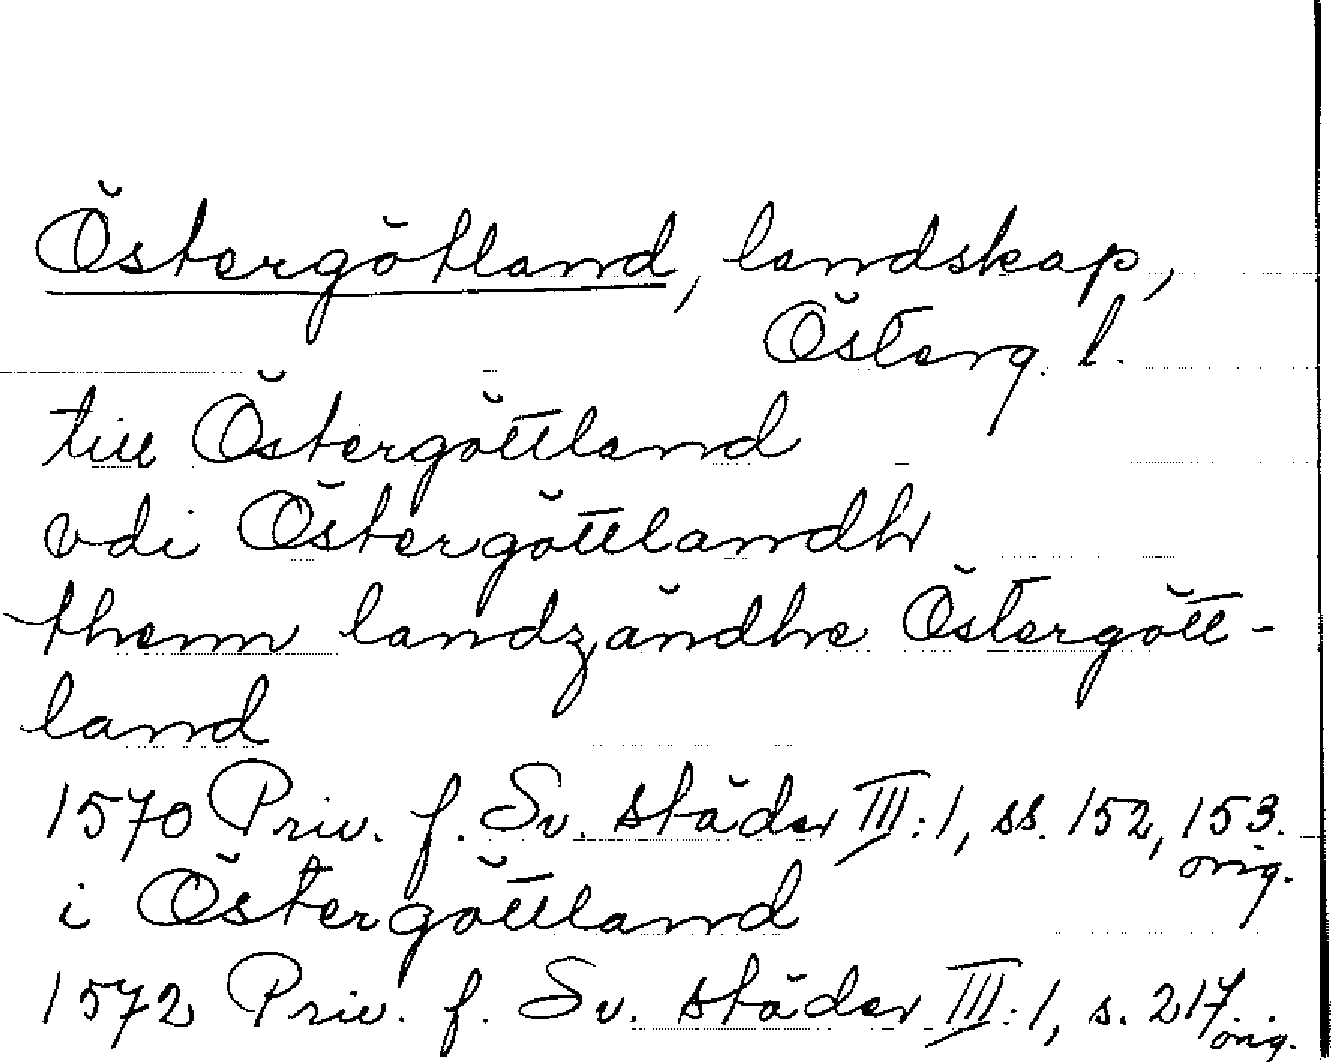 Östergötland, landskap,
Österg. l.
till Östergöttland
vdi Östergöttlandh
themn landzändhe Östergött-
land
1570 Priv. f. Sv. städer III:1, ss. 152, 153.
orig.
i Östergöttland
1572 Priv. f. Sv. städer III:1, s. 217.
orig.